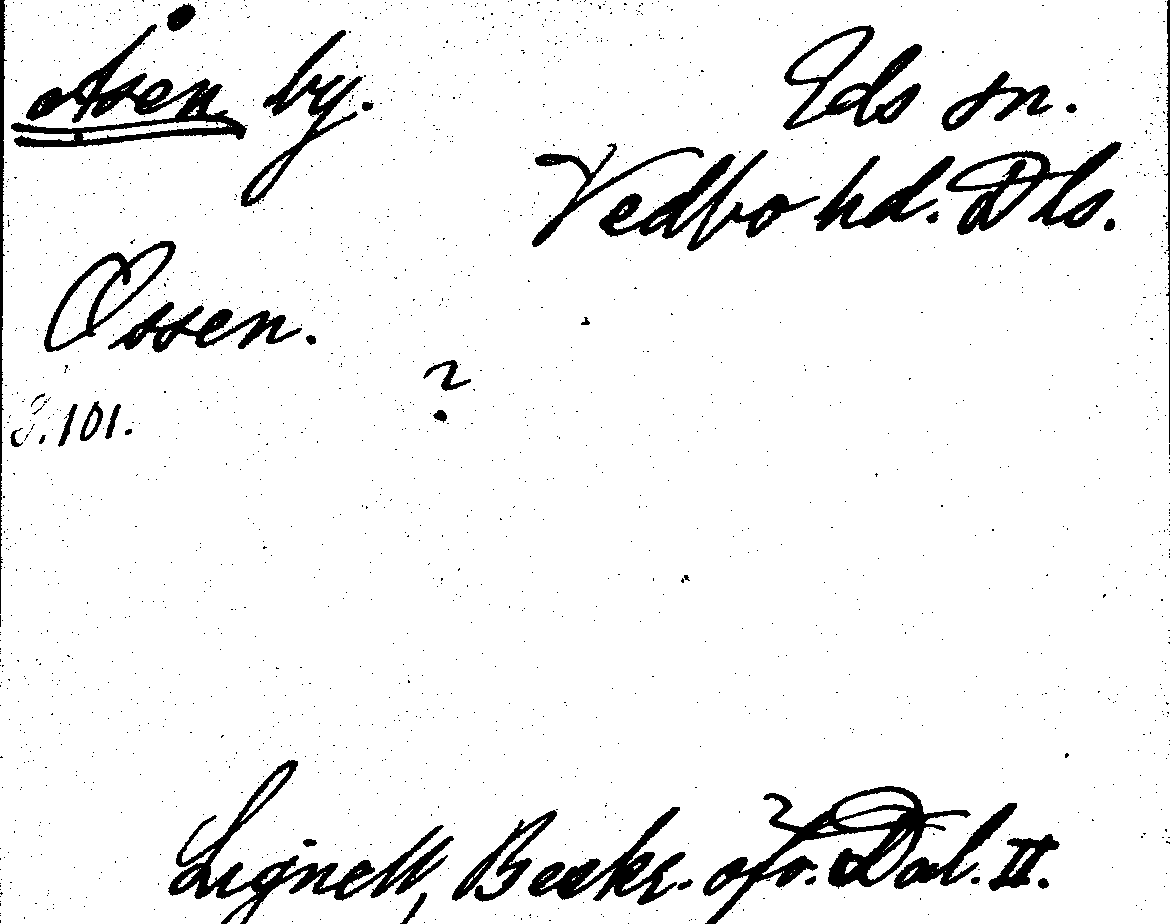 Åsen by.
Eds sn.
Vedbo hd. Dls.
Ossen.
S. 101.
?
Lignell, Beskr. öfv. Dal. II.